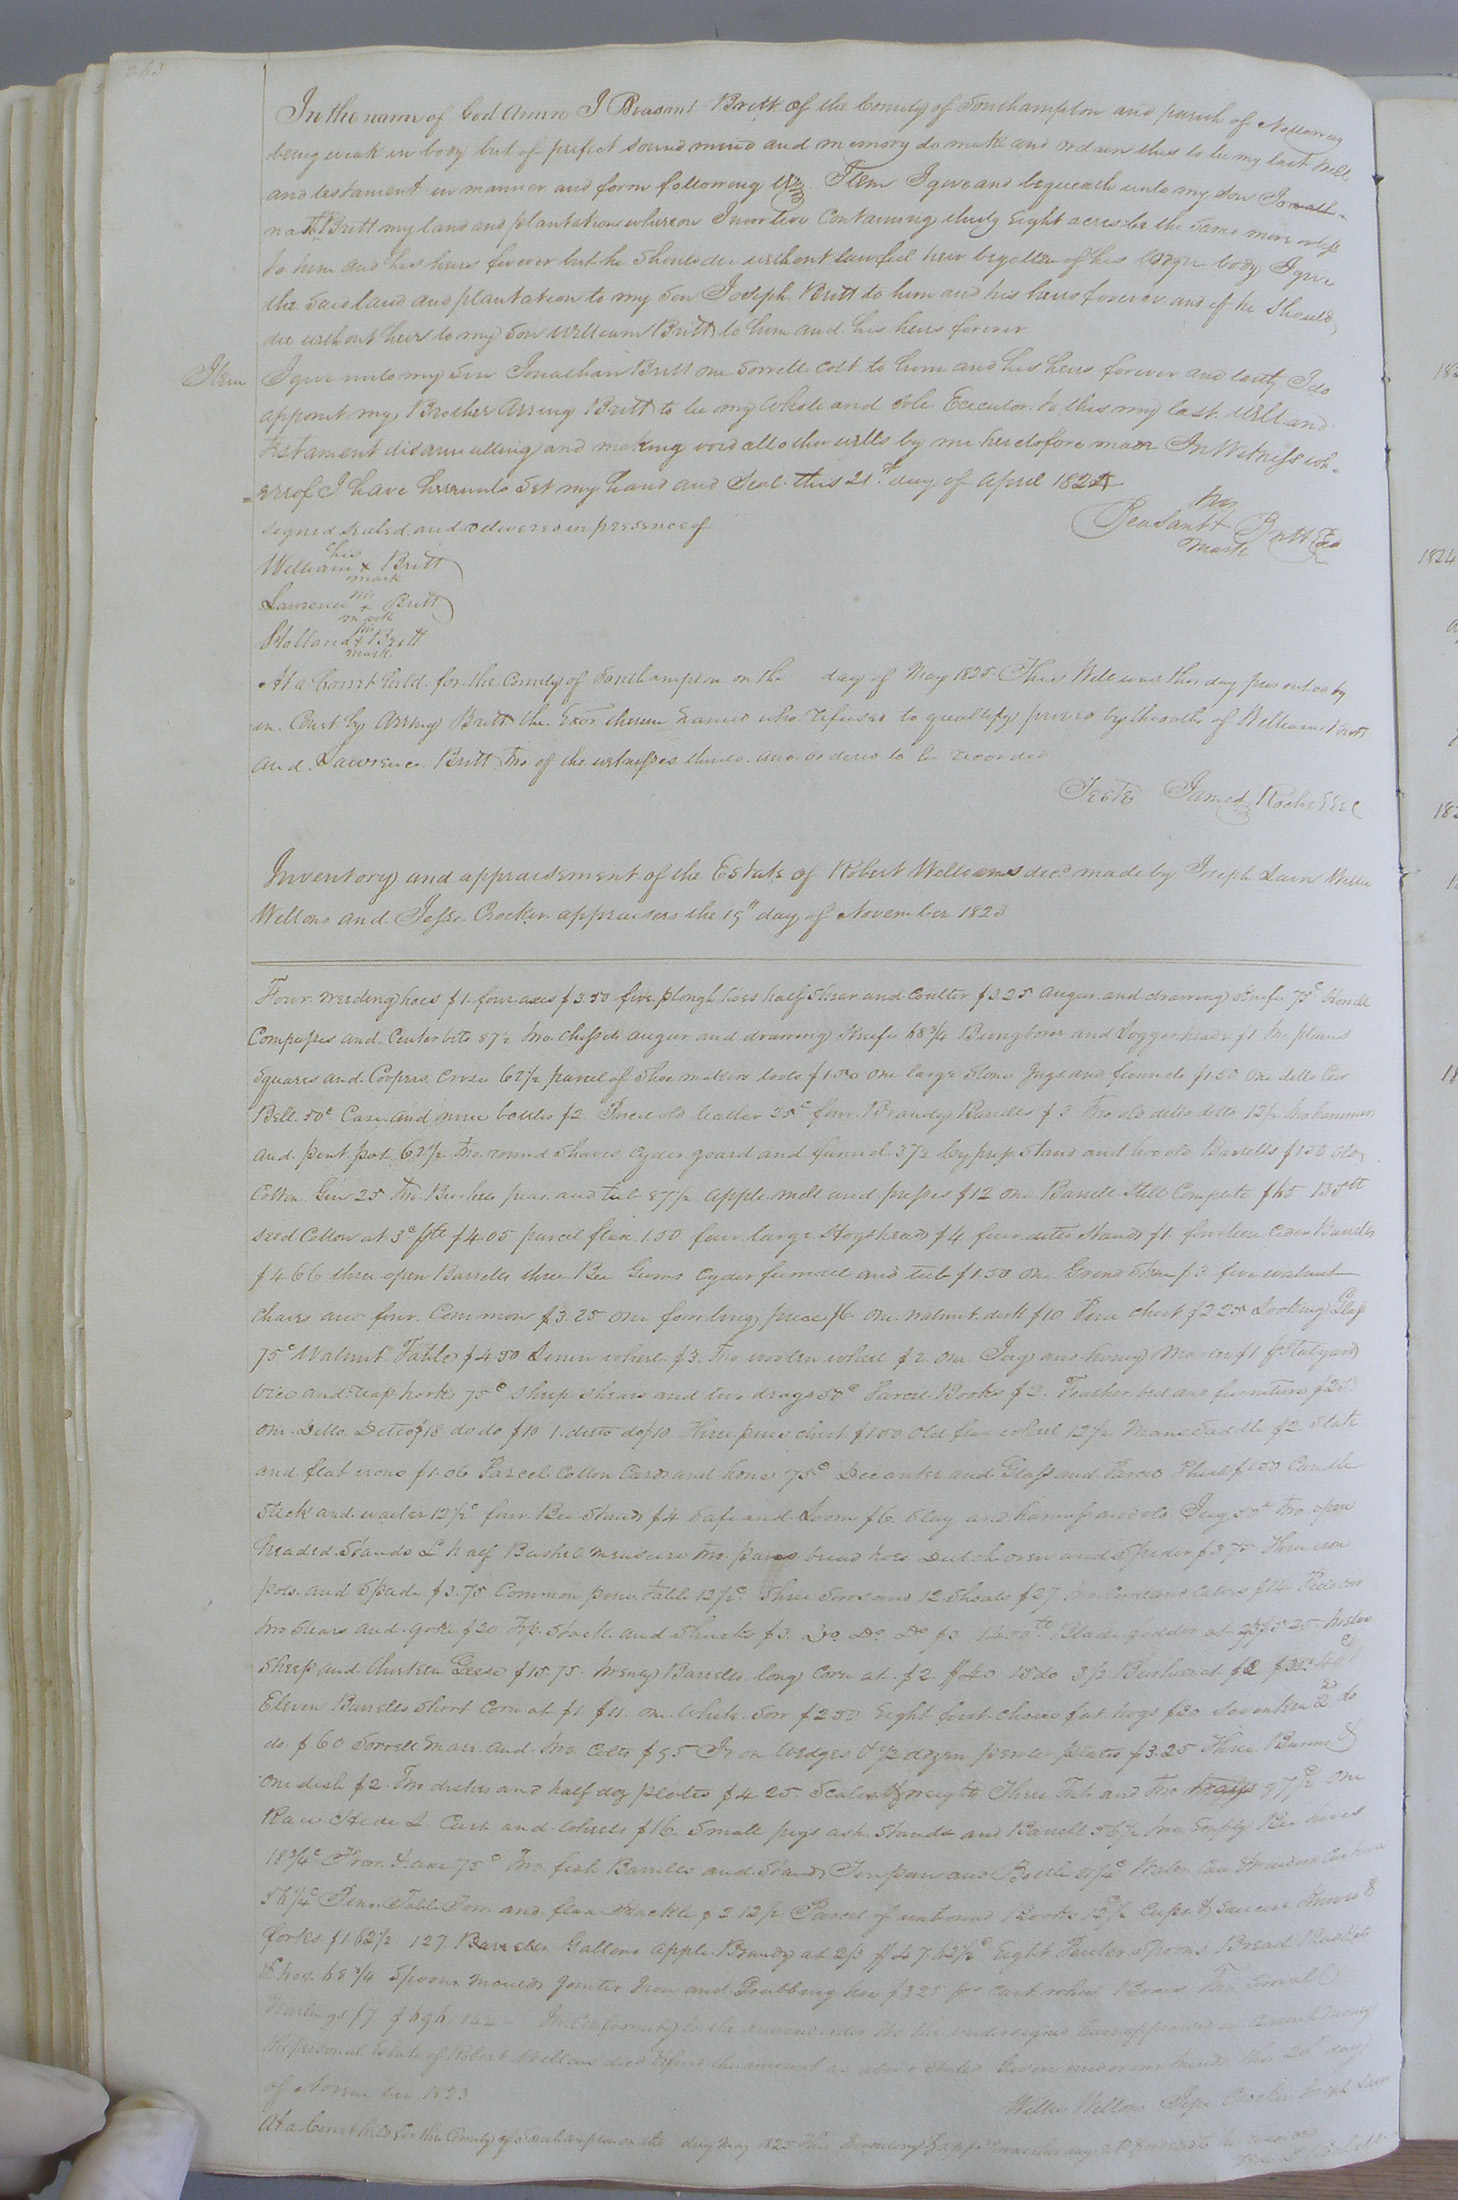 In the name of God Amen I Pleasant Britt of the County of Southampton and parish of Nottoway
being weak in body but of prefect sound mind and memory do make and ordain this to be my last Will
and testament in manner and form following Viz. Item I give and bequeath unto my Son Jonath-
nath Britt my land and plantation whereon I now live Containing thirty Eight acres be the same more or less
to him and his heirs forever but he should die without lawful heir begotten of his body I give
the said land and plantation to my Son Joseph Britt to him and his heirs forever and if he Should
die without heirs to my Son William Britt to him and his heirs forever
Item I give unto my Son Jonathan Britt one Sorrell Colt to him and his heirs forever and lastly I do
appoint my Brother Arring Britt to be my Whole and sole Executor to this my last Will and
testament disannulling and making void all other wills by me heretofore made In Witness wh-
=ereof I have hereunto Set my hand and Seal this 21st day of April 1824
Signed sealed and delivered in presence of
his
Peasant + Britt
mark
his
William + Britt
mark
his
Lawrence + Britt
mark
his
Holland + Britt
mark
At a Court held for the County of Southampton on the day of May 1825 This Will was this day presented
in Court by Arring Britt the Exor therein named who refused to qualify proved by the oaths of William Britt
and Lawrence Britt two of the witnesses thereto and ordered to be recorded
Teste James Rochelle
Inventory and appraisement of the Estate of Robert Wellons decd made by Joseph Lain Willie
Wellons and Jesse Crocker appraisers the 19" day of November 1823
Four weeding hoes $1 four axes $3.50 five plough hoes half Shear and Coulter $3.25 Augur and drawing Knife 75c
Compasses and Center bits 87½ two Chissels augur and drawing Knife 68¾ Bung borer and Loggerhead $1 two plains
Squares and Coopers Crose 62½ parcel of Shoe makers tools $1.50 one large Stone Jugs and funnels $1.50 one ditto
Bell 50c Case and nine bottles $2 Parcel old leather 25c four Brandy Rundles $3 two old ditto ditto 12½ two hammers
and paint pot 62½ two round Shaves Cyder goard and funnel 37½ Cypress Stand and two old Barrells $1.50 old
Cotton Gin 25 two Bushels peas and tub 87½ apple mill and presses $12 one Barrell Still Complete $65 135 lb
Seed Cotton at 3c $4.05 parcel flax 1.50 four large Hogsheads $4 four ditto Stands $1 fourteen Cider Barrells
$4.66 three open Barrells three Bee Gums Cyder funnel and tub $1.50 One Grind Stone $3 five walnut
Chairs and four Common $3.25 one fowling piece $6 one walnut desk $10 Pine chest $2.25 Looking Glass
75c Walnut Table $4.50 Linen wheel $3 two woolen wheel $2 one Jug and honey $1 Stilyard
and trap hooks 75c Sheep Shears and two drags 50c Parcel Books $2 Feather bed and furniture
one Ditto Ditto $18 do do $10 1 ditto do $10 Three pine chest $1.50 Old flax wheel 12½ Mans Saddle $2 Slate
and flat irons $1.06 Parcel Cotton Cards and hone 75c Decanter and Glass and $1.50 Candle
Stick and waiter 12½c four Bee Stands $4 Safe and Loom $6 Slay and harness and old Jug 50c two open
headed Stands & half Bushel measure two bread hoes Dutch oven and Spider $3.75 Three iron
pots and Spade $3.75 Common pine table 12½c Three Sows and 12 Shoats $27 two Cows and Calves $14
two Stears and yoke $20 Top Stack and Shucks $3 Do Do Do $3 1400 lb Blade fodder at
Sheep and thirteen Geese $15.75 twenty Barrells long Corn at $2 $40 15 do Bushels at
Eleven Barrells Short Corn at $1 $11 one White Sow $2.50 Eight first choice fat hogs $50 Seventeen 2nd do
do $60 Sorrell Mare and two Colts $95 Iron Wedges & ½ dozen pewter plates $3.25 Three Basons &
one dish $2 Two dishes and half doz plates $4.25 Scales & weights Three Tubs and two trays 97½ One
Raw Hide & Cart and Wheels $16 Small pugs ash Stands and Barrell 56½ two Empty Bee hives
18¾c Frow & axe 75c Two fish Barrells and Stand Tin pan and Bottle
56¼c Pine Table Tow and flax Hackle $2.12½ Parcel of unbound Books 12½c Cups & Saucers Knives &
forks $1.62½ 127 Gallons apple Brandy at 2/3 $47.62½c Eight Pewter Spoons Bread Baskets
& hoe 68¾ Spoon moulds jointer Iron and Grubbing hoe $3.25 Cart wheel Boxes Two Small
$7 In Conformity to the annexed order We the undersigned have appraised
the personal Estate of Robert Wellons decd & find the amount as above stated Given under our hands this 20 day
of November 1823
Willie Wellons Jesse Crocker Joseph Lain
At a Court held for the County of Southampton on the day May 1825 This Inventory & was this day